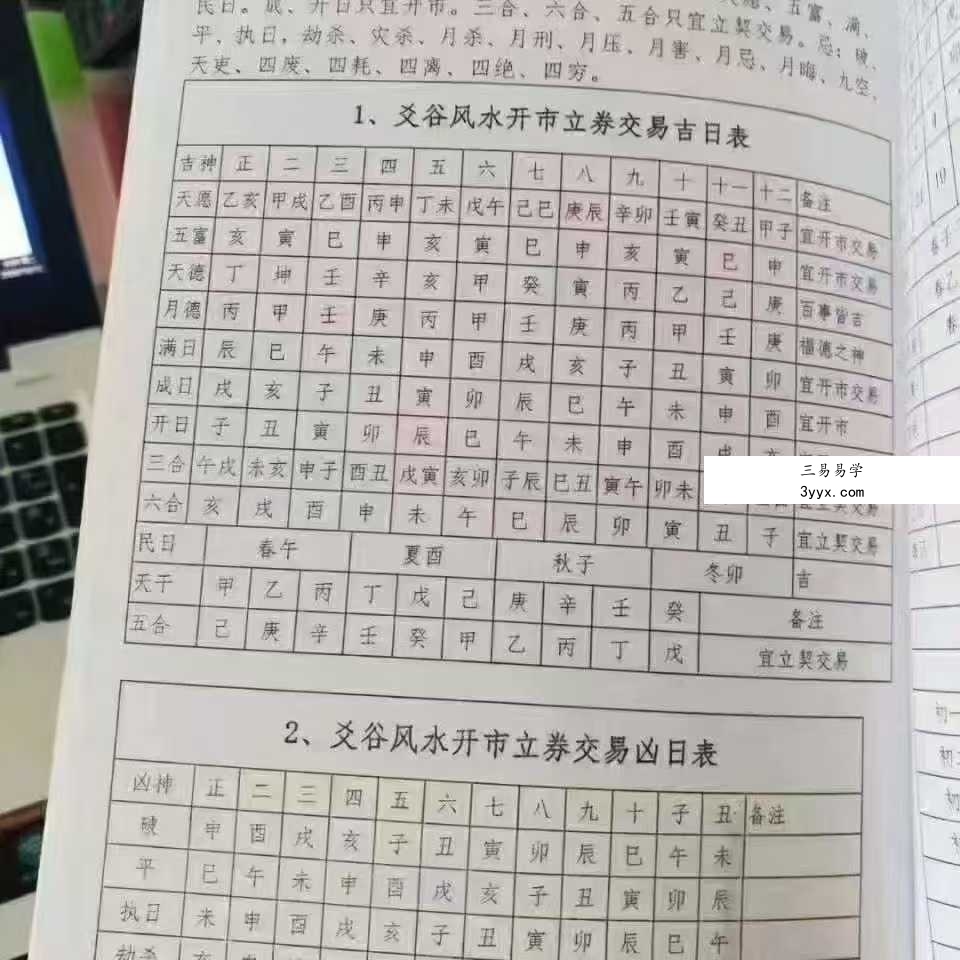 民日。成、开日只宜开市。三合、六合、五合只宜立契交易。忌：破、
平、执日，劫杀、灾杀、月杀、月刑、月压、月害、月忌、月晦、九空、
天吏、四废、四耗、四离、四绝、四穷。
1、爻谷风水开市立券交易吉日表
吉神 正 二 三 四 五 六 七 八 九 十 十一 十二 备注
天愿 乙亥 甲戌 乙酉 丙申 丁未 戊午 己巳 庚辰 辛卯 壬寅 癸丑 甲子 宜开市交易
五富 亥 寅 巳 申 亥 寅 巳 申 亥 寅 巳 申 宜开市交易
天德 丁 坤 壬 辛 亥 甲 癸 寅 丙 乙 己 庚 百事皆吉
月德 丙 甲 壬 庚 丙 甲 壬 庚 丙 甲 壬 庚 福德之神
满日 辰 巳 午 未 申 酉 戌 亥 子 丑 寅 卯 宜开市交易
成日 戌 亥 子 丑 寅 卯 辰 巳 午 未 申 酉 宜开市
开日 子 丑 寅 卯 辰 巳 午 未 申 酉 戌
三合 午戌 未亥 申子 酉丑 戌寅 亥卯 子辰 巳丑 寅午 卯未
六合 亥 戌 酉 申 未 午 巳 辰 卯 寅 丑 子 宜立契交易
民日 春午 夏酉 秋子 冬卯 吉
天干 甲 乙 丙 丁 戊 己 庚 辛 壬 癸 备注
五合 己 庚 辛 壬 癸 甲 乙 丙 丁 戊 宜立契交易
三易易学
3yyx.com
2、爻谷风水开市立券交易凶日表
凶神 正 二 三 四 五 六 七 八 九 十 子 丑 备注
破 申 酉 戌 亥 子 丑 寅 卯 辰 巳 午 未
平 巳 午 未 申 酉 戌 亥 子 丑 寅 卯 辰
执日 未 申 酉 戌 亥 子 丑 寅 卯 辰 巳 午
劫杀
10
春子
春乙
春
初一
初二
初